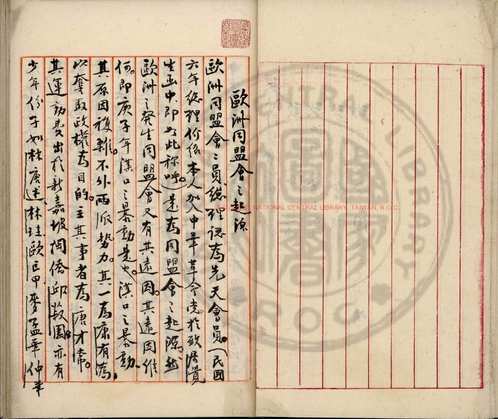 歐洲同盟會之起源
歐洲同盟會之員總理認為先天會員。（民國
六年總理介紹本人加入中華革命党於啟居覺
生函中即如此称呼）是為同盟會之起源。然
歐洲之發生同盟會又有其遠因。其遠因維
何。即庚子年漢口之暴動是也。漢口之暴動
其原因複雜。不外兩派勢力。其一為康有為
以奪取政權為目的。主其事者為唐才常。
其運動費出於新嘉坡閩僑邱菽園。亦有
少年份子如林庚述林圭歐巨甲麥孟華仲華
NATIONAL CENTRAL LIBRARY, TAIWAN, R.O.C.